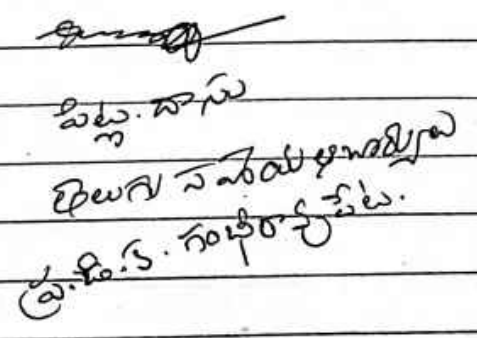 పిట్ల. దాసు
తెలుగు సహాయ ఆచార్యులు
ప్ర.డి.క. గంభీరావుపేట.